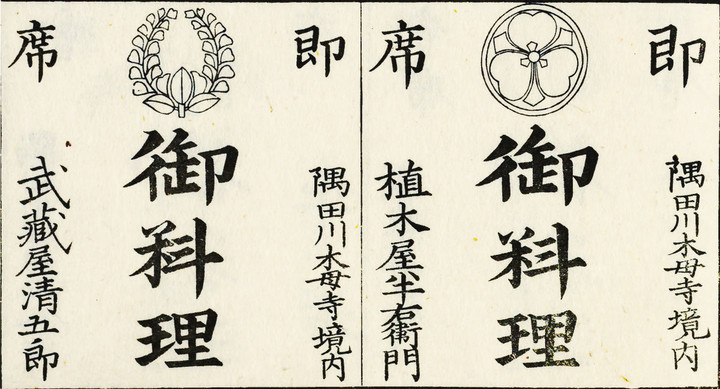 即席
隅田川木母寺境内
御料理
植木屋半右衛門
即席
隅田川木母寺境内
御料理
武藏屋清五郎